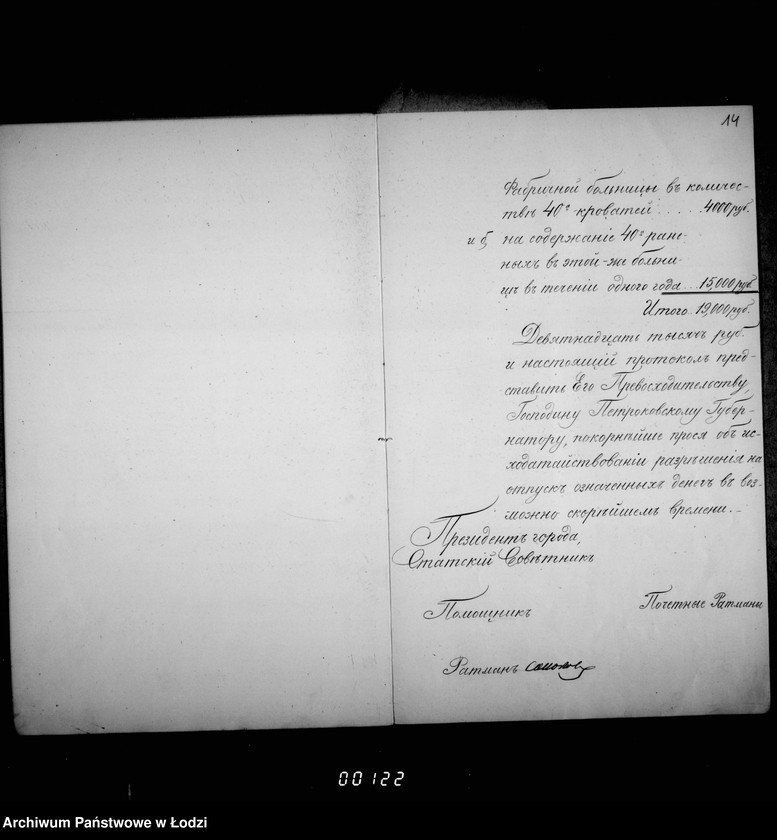 14
Фабричной больницы въ количес-
твѣ 40ᵃ кроватей ..... 4000 руб.
и б, на содержаніе 40ᵃ ране-
ныхъ въ этой-же больни-
цѣ въ теченіи одного года ... 15,000 руб
Итого 19,000 руб.
Девятнадцать тысячъ руб.
и настоящій протоколъ пред-
ставить Его Превосходительству,
Господину Петроковскому Губер-
натору, покорнѣйше прося объ ис-
ходатайствованіи разрѣшенія на
отпускъ означенныхъ денегъ въ воз-
можно скорѣйшемъ времени.
Президентъ города,
Статскій Совѣтникъ
Помощникъ Почетные Ратманы
Ратманъ
00122
Archiwum Państwowe w Łodzi